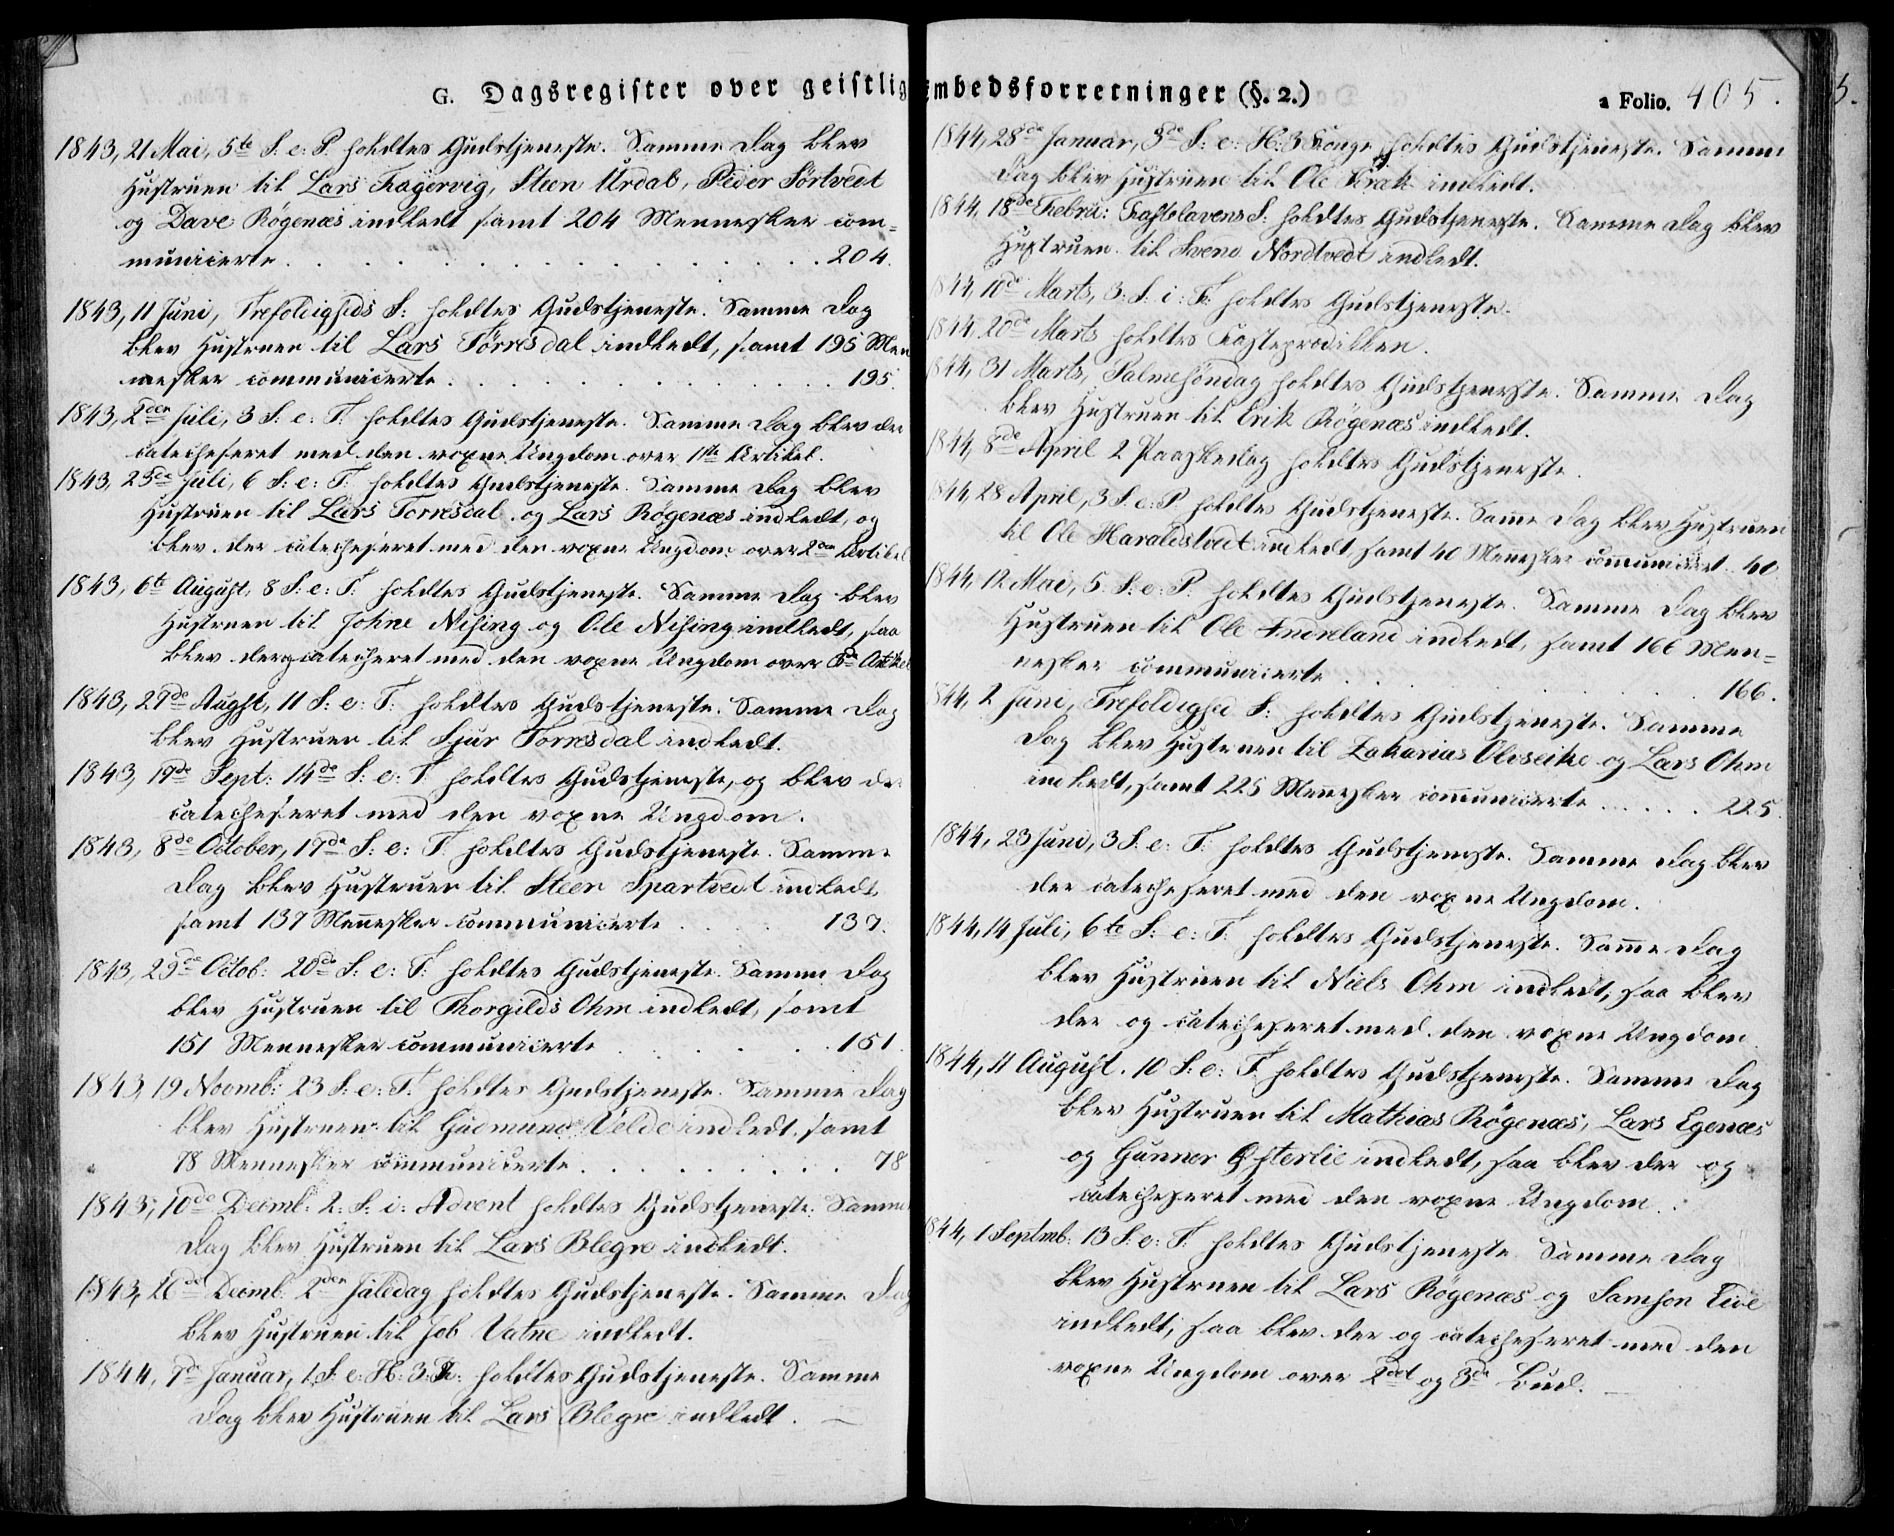 G. Dagsregister over geistlig
1843, 21 Mai, 5te S. e. P. holdtes Gudstjeneste. Samme Dag blev
Hustruen til Lars Fagervig, Steen Urdal, Peder Sørtvedt
og Dave Røgenæs indledt samt 204 Mennesker com=
municerte . . . . . . . 204.
1843, 11 Juni, Trefoldigheds S: holdtes Gudstjeneste. Samme Dag
blev Hustruen til Lars Tørresdal indledt, samt 195 Men
nesker communicerte . . . . . . . 195.
1843, 2den Juli, 3 S. e. T. holdtes Gudstjeneste. Samme Dag blev der
catecheseret med den voxne Ungdom over 1ste Artikel.
1843, 23de Juli, 6 S: e: T. holdtes Gudstjeneste. Samme Dag blev
Hustruen til Lars Torresdal og Lars Røgenæs indledt, og
blev der catecheseret med den voxne Ungdom over 2den Artikel
1843, 6te August, 8 S: e: T. holdtes Gudstjeneste. Samme Dag blev
Hustruen til Johne Nising og Ole Nising indledt, saa
blev der og catecheret med den voxne Ungdom over 3de Artikel
1843, 27de Augst, 11 S: e: T: holdtes Gudstjeneste. Samme Dag
blev Hustruen til Sjur Torresdal indledt.
1843, 17de Sept: 14de S: e: T. holdtes Gudstjeneste, og blev der
catecheseret med den voxne Ungdom.
1843, 8de October, 17de S: e: T. holdtes Gudstjeneste. Samme
Dag blev Hustruen til Steen Spartvedt indledt,
samt 137 Mennesker communicerte . . . . 137.
1843, 29de Octob: 20de S: e: T: holdtes Gudstjeneste. Samme Dag
blev Hustruen til Thorgilds Ohm indledt, samt
151 Mennesker communicerte . . . . . 151.
1843, 19 Noomb: 23 S: e: T. holdtes Gudstjeneste. Samme Dag
blev Hustruen til Gudmund Velde indledt, samt
78 Mennesker communicerte . . . . . . . 78
1843, 10de Decmb: 2. S: i: Advent holdtes Gudstjeneste. Samme
Dag blev Hustruen til Lars Blegre indledt.
1843, 26de Decmb. 2den Juledag holdtes Gudstjeneste. Samme Dag
blev Hustruen til Job Vatne indledt.
1844, 7de Januar, 1 S: e: H: 3. K: holdtes Gudstjeneste. Samme
Dag blev Hustruen til Lars Blegre indledt. —
Embedsforretninger (§. 2.) a Folio. 405.
1844, 28de Januar, 3de S: e: H: 3 Konge holdtes Gudstjeneste. Samme
Dag blev Hustruen til Ole indledt.
1844, 18de Febru: Fastelavens S: holdtes Gudstjeneste. Samme Dag blev
Hustruen til Svend Nordtvedt indledt.
1844, 10de Marts, 3: S: i: F: holdtes Gudstjeneste.
1844, 20de Marts holdtes Fasteprædiken.
1844, 31 Marts, Palmesøndag holdtes Gudstjeneste. Samme Dag
blev Hustruen til Erik Røgenæs indledt.
1844, 8de April 2 Paaskedag holdtes Gudstjeneste.
1844, 28 April, 3 S. e: P. holdtes Gudstjeneste. Same Dag blev Hustruen
til Ole Haraldstvedt indledt, samt 40 Menesker communicert. 40
1844, 12 Mai, 5 S: e: P. holdtes Gudstjeneste. Samme Dag blev
Hustruen til Ole Indreland indledt, samt 166 Men=
nesker communicerte . . . . . . 166.
1844, 2 Juni, Trefoldighed S: holdtes Gudstjeneste. Samme
Dag blev Hustruen til Zakarias Olveseike og Lars Ohm
indledt, samt 225 Menesker communicerte . . . . . 225.
1844, 23 Juni, 3 S. e: T. holdtes Gudstjeneste. Samme Dag blev
der catecheseret med den voxne Ungdom.
1844, 14 Juli, 6te S: e: T: holdtes Gudstjeneste. Same Dag
blev Hustruen til Niels Ohm indledt, saa blev
der og catecheseret med den voxne Ungdom.
1844, 11 August. 10 S. e: T. holdtes Gudstjeneste. Samme Dag
blev Hustruen til Mathias Røgenæs, Lars Egenæs
og Gunner Østerlie indledt, saa blev der og
catecheseret med den voxne Ungdom.
1844, 1 Septmb. 13 S. e: T. holdtes Gudstjeneste. Samme Dag
blev Hustruen til Lars Røgenæs og Samson Eive
indledt; saa blev der og catecheseret med den
voxne Ungdom over 2det og 3de Bud. —